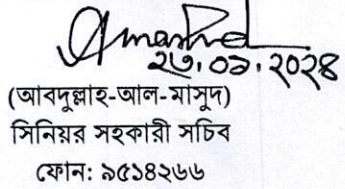 ২৩.০৯.২০২৪
(আবদুল্লাহ-আল-মাসুদ)
সিনিয়র সহকারী সচিব
ফোন: ৯৫১৪২৬৬